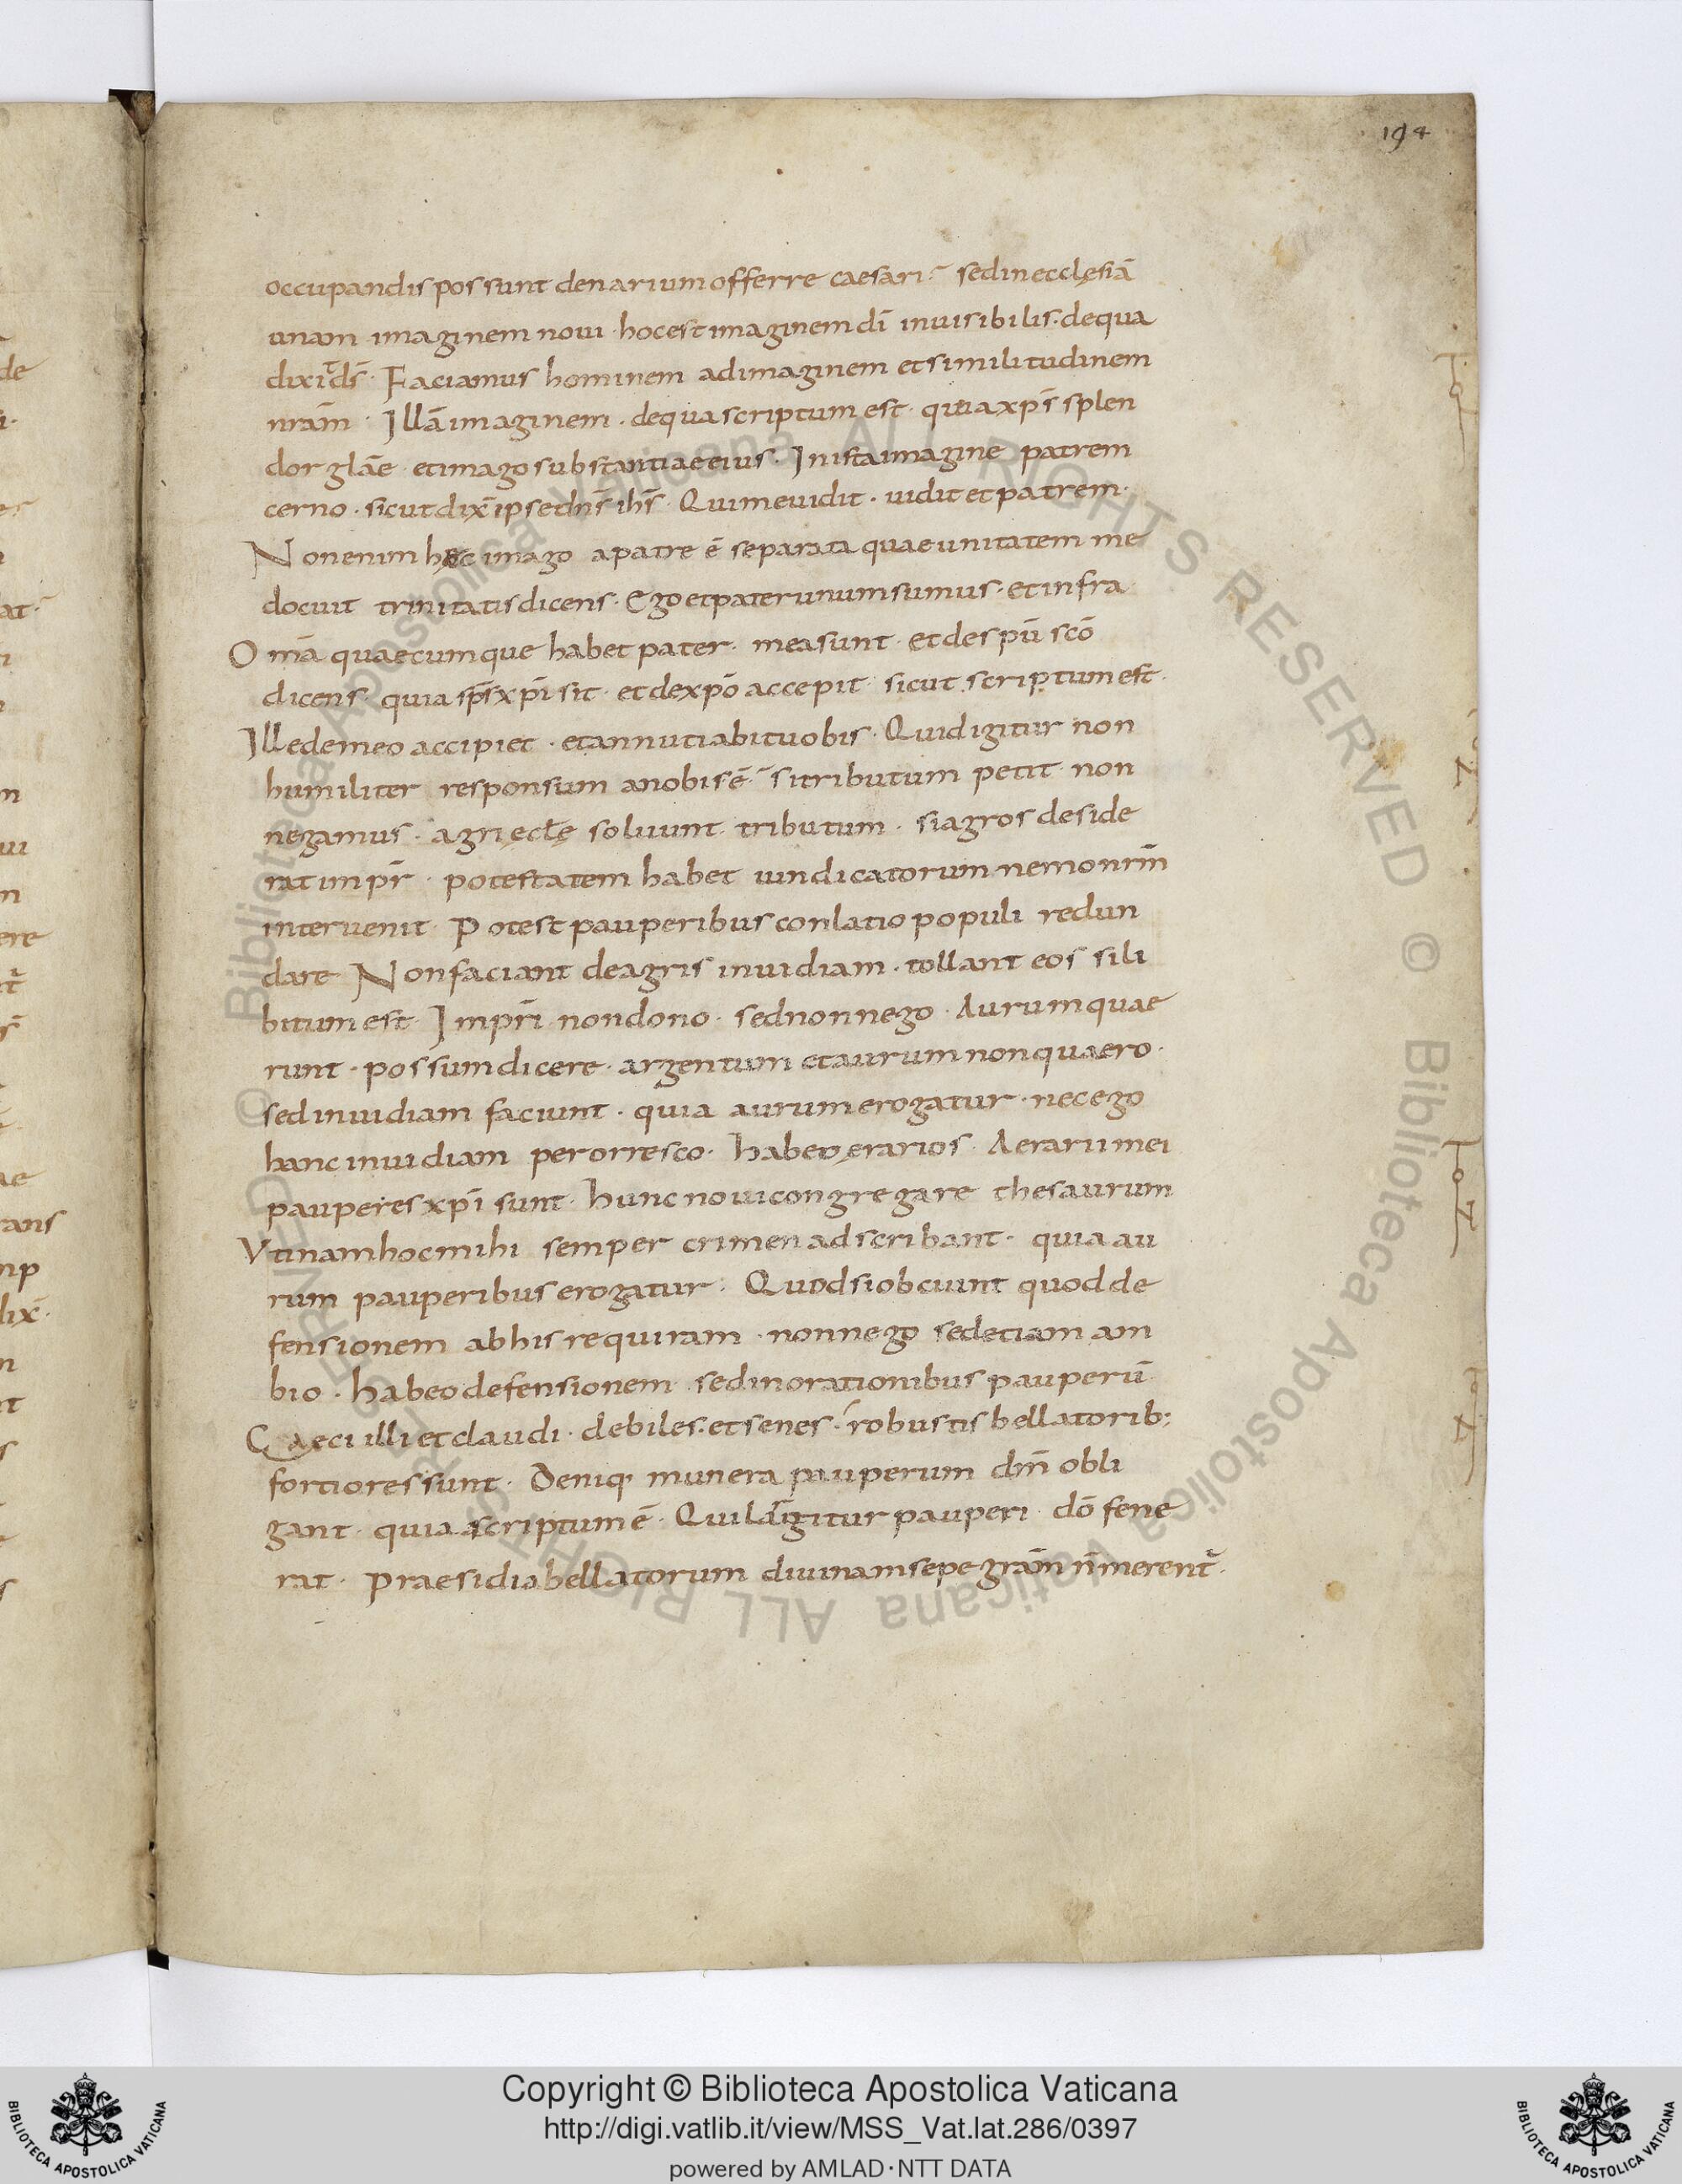 194
occupandis possunt denarium offerre caesari. sed in ecclęsiā
unam imaginem noui · hoc est imaginem dī inuisibilis · de qua
dixit ds̄ · Faciamus hominem ad imaginem et similitudinem
nrām · Illā imaginem · de qua scriptum est · quia xp̄s splen
dor glāe · et imago substantiae eius · In ista imagine patrem
cerno · sicut dix̄ ipse dn̄s ih̄s · Qui me uidit · uidit et patrem ·
Non enim hęc imago a patre ē separata quae unitatem me
docuit trinitatis dicens · Ego et pater unum sumus · et infra
Omā quaecumque habet pater · mea sunt · et de spū scō
dicens · quia sp̄s xp̄i sit · et de xp̄o accepit · sicut scriptum est ·
Ille de meo accipiet · et annutiabit uobis · Quid igitur non
humiliter responsum a nobis ē · si tributum petit · non
negamus · agri ęcłę soluunt tributum · si agros deside
rat impr̄ · potestatem habet uindicatorum nemo nrm̄
interuenit · Potest pauperibus conlatio populi redun
dare Non faciant de agris inuidiam · tollant eos si li
bitum est · Impr̄i non dono · sed non nego · Aurum quae
runt · possum dicere · argentum et aurum non quaero ·
sed inuidiam faciunt · quia aurum erogatur · nec ego
hanc inuidiam perorresco · habeo ęrarios · Aerarii mei
pauperes xp̄i sunt · hunc noui congregare thesaurum
Vtinam hoc mihi semper crimen adscribant · quia au
rum pauperibus erogatur · Quod si obciunt quod de
fensionem ab his requiram · non nego sed etiam am
bio · habeo defensionem sed in orationibus pauperū
Caeci illi et claudi · debiles · et senes · robustis bellatorib;
fortiores sunt · Deniq· munera pauperum dm̄ obli
gant · quia scriptum ē · Qui igitur pauperi dō fene
rat · praesidia bellatorum diuinam sepe grām n̄ merent̄ ·
© Biblioteca Apostolica Vaticana ALL RIGHTS RESERVED © Biblioteca Apostolica Vaticana ALL RIGHTS RESERVED
BIBLIOTECA APOSTOLICA VATICANA
Copyright © Biblioteca Apostolica Vaticana
http://digi.vatlib.it/view/MSS_Vat.lat.286/0397
powered by AMLAD·NTT DATA
BIBLIOTECA APOSTOLICA VATICANA